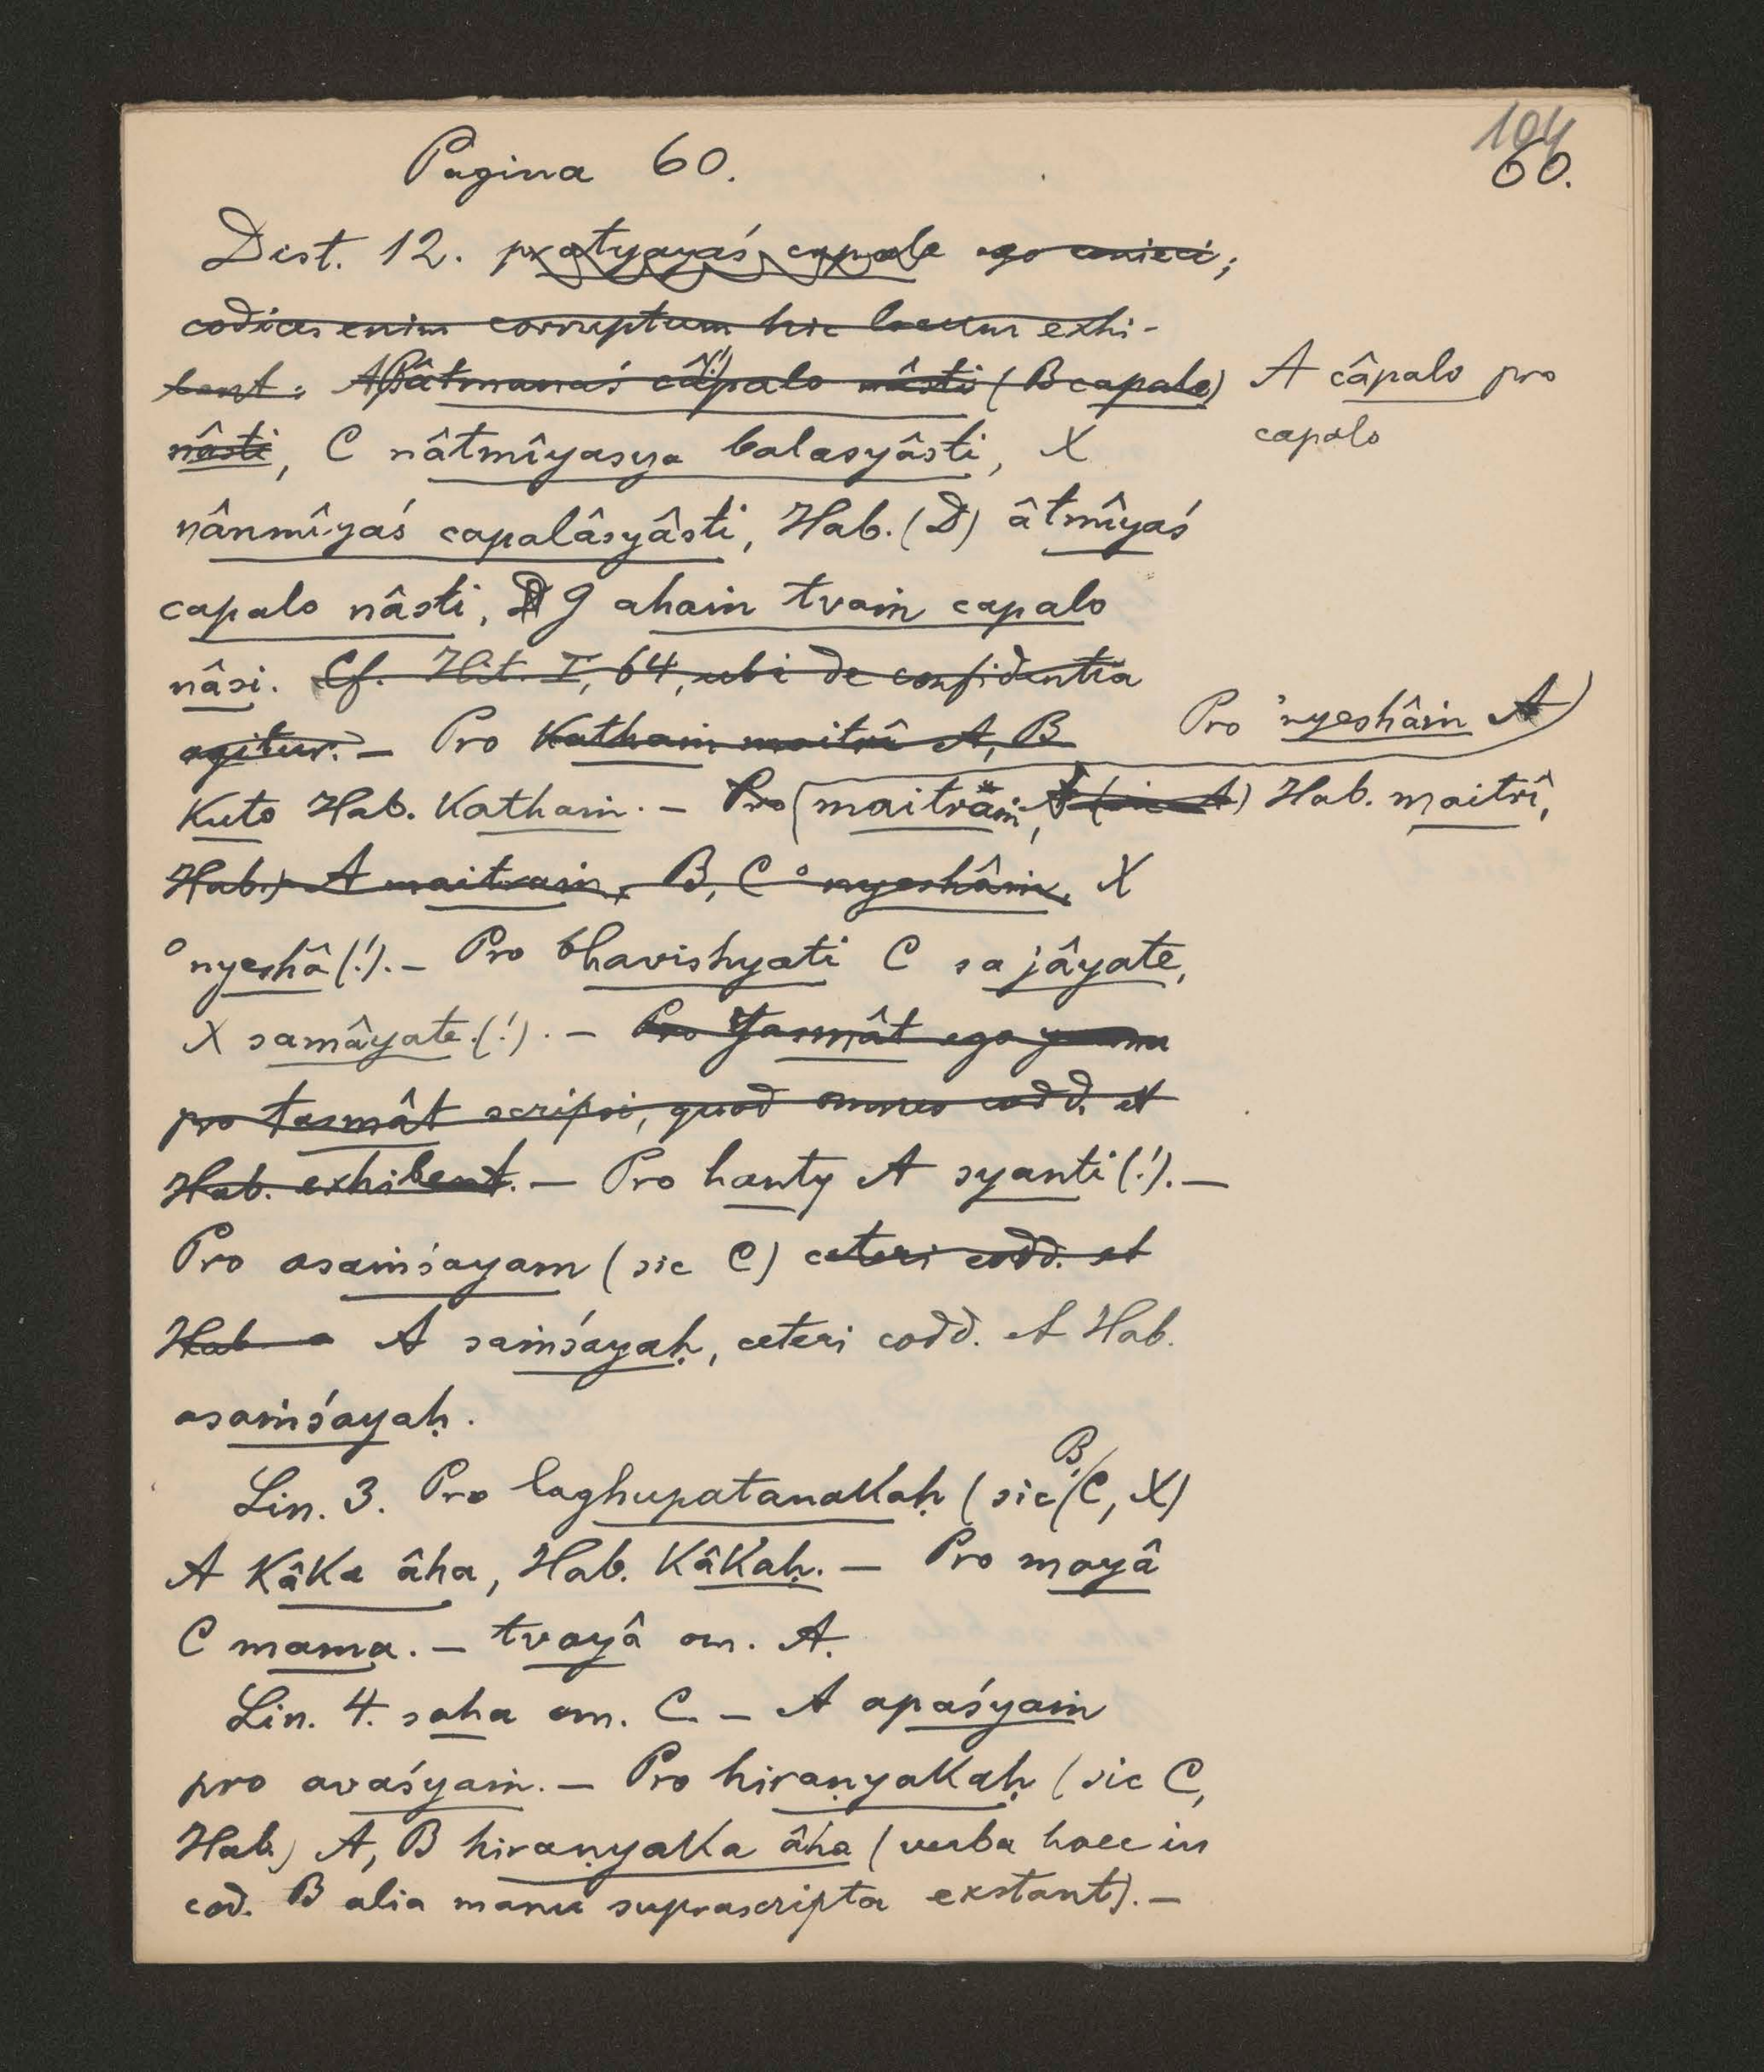 104
Pagina 60.
60.
Dist. 12. pratyayaś capale ego conieci;
codices enim corruptum hic locum exhi-
bent: A, B âtmanaś câpalo nâsti (B capalo)
A câpalo pro
capalo
nâsti, C nâtmîyasya balasyâsti, X
nânmîyaś capalâsyâsti, Hab. (D) âtmîyaś
capalo nâsti, G ahaṁ tvaṁ capalo
nâsi. Cf. Hit. I, 64, ubi de confidentia
agitur. — Pro kathaṁ maitrî A, B
Pro 'nyeshâṁ A
Kuto Hab. Kathaṁ. — Pro (maitrâṁ, (sic A) Hab. maitrî,
Hab.) A maitraṁ, B, C °nyeshâṁ, X
°nyeshâ (!). — Pro bhavishyati C sa jâyate,
X samâyate (!). — Pro Yasmât ego
pro tasmât scripsi, quod omnes codd. et
Hab. exhibent. — Pro hanty A syanti (!). —
Pro asaṁśayam (sic C) ceteri codd. et
Hab. a A saṁśayaḥ, ceteri codd. et Hab.
asaṁśayaḥ.
Lin. 3. Pro laghupatanakaḥ (sic B, C, X)
A Kâka âha, Hab. Kâkaḥ. — Pro mayâ
C mama. — tvayâ om. A.
Lin. 4. saha om. C. — A apaśyaṁ
pro avaśyaṁ. — Pro hiraṇyakaḥ (sic C,
Hab.) A, B hiraṇyaka âha (verba haec in
cod. B alia manu suprascripta exstant). —